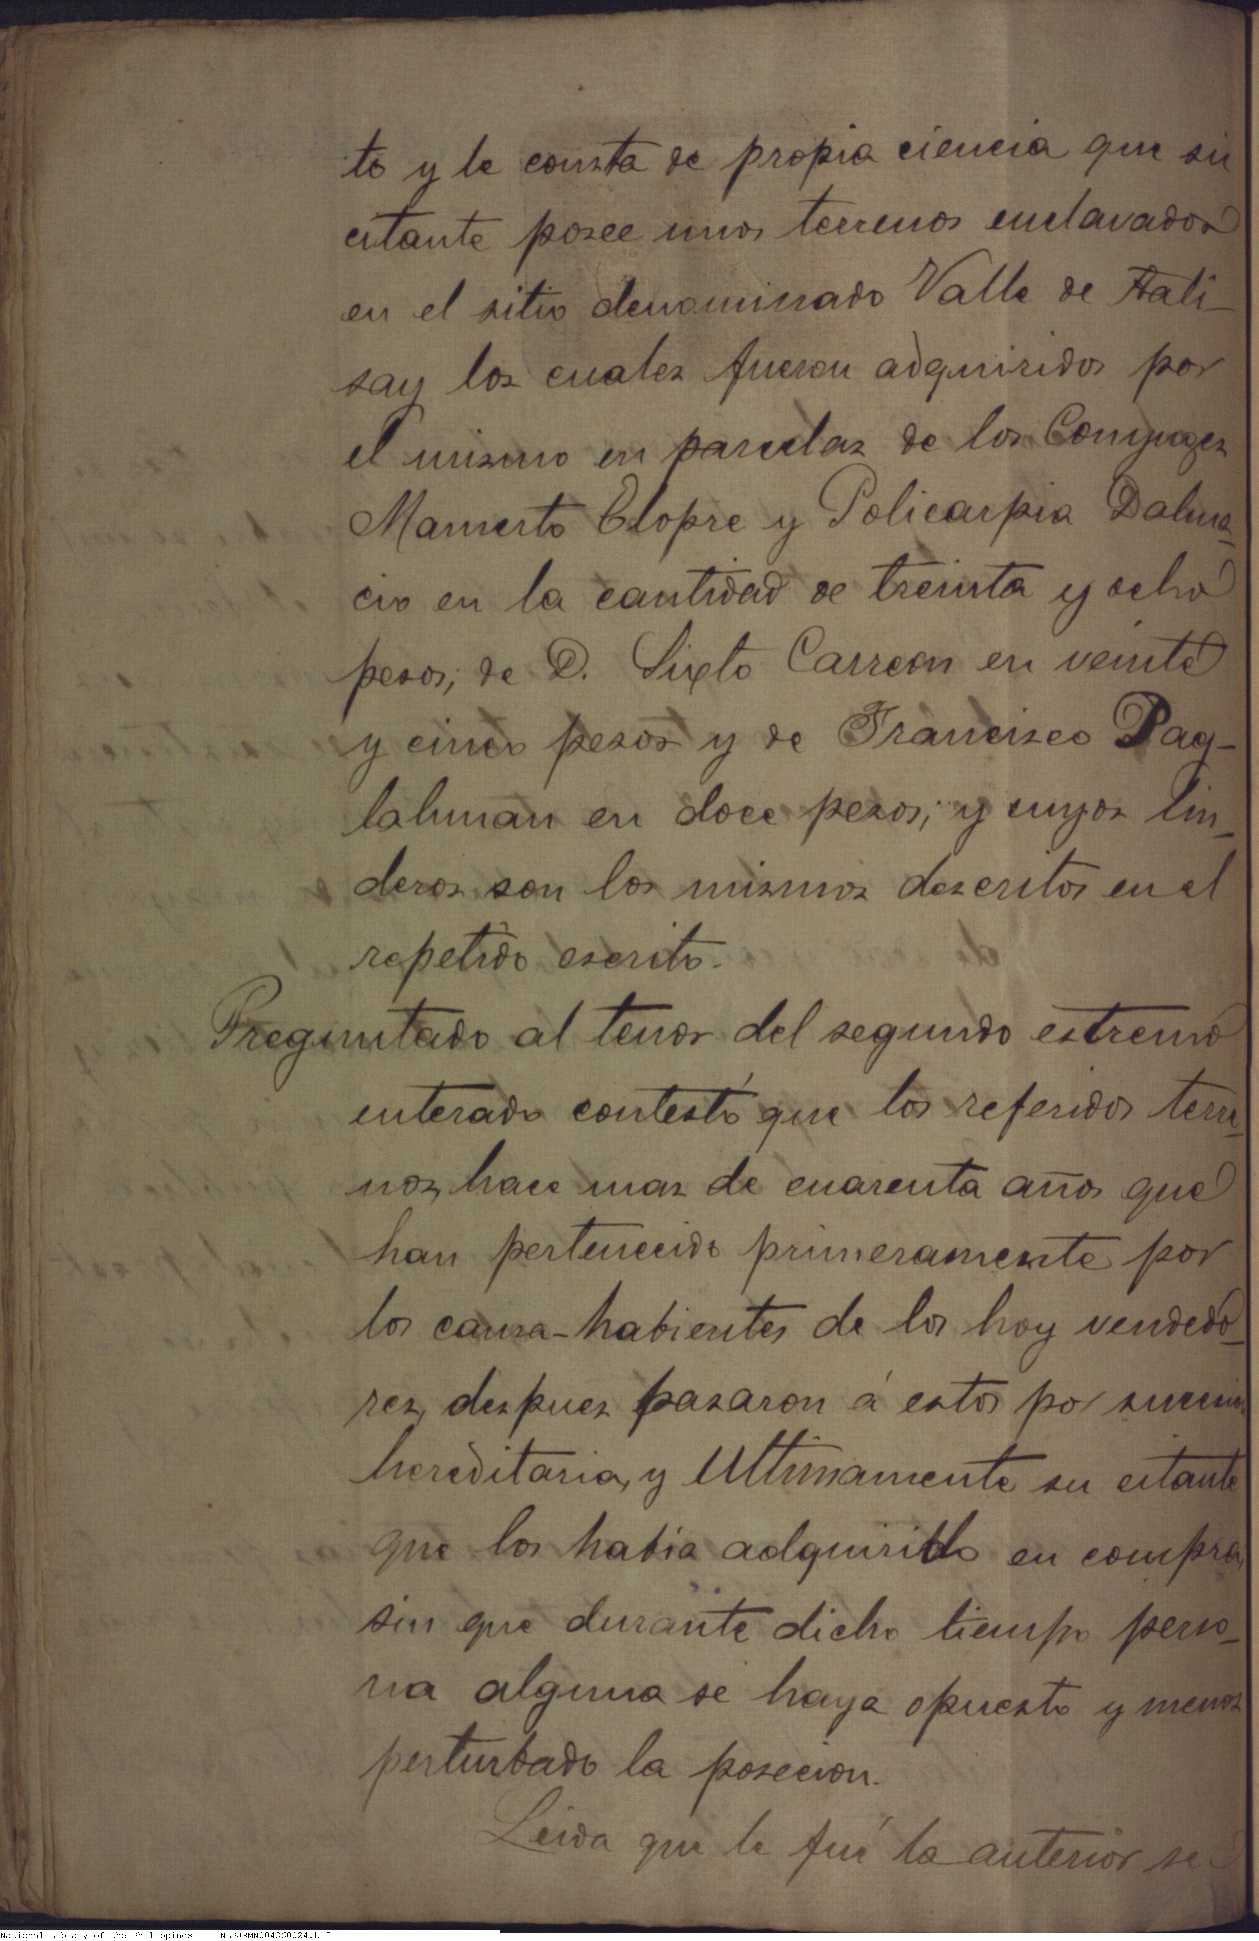 to y le consta de propia ciencia que su
citante posee unos terrenos enclavados
en el sitio denominado Valle de Tali-
say los cuales fueron adquiridos por
el mismo en parcelas de los Conyuges
Mamerto Elopre y Policarpia Dalma-
cio en la cantidad de treinta y ocho
pesos; de D. Sixto Carreon en veinte
y cinco pesos y de Francisco Pag-
lalunan en doce pesos; y cuyos lin-
deros son los mismos descritos en el
repetido escrito.
Preguntado al tenor del segundo estremo
enterado contestó que los referidos terre-
nos, hace mas de cuarenta años que
han pertenecido primeramente por
los causa-habientes de los hoy vendedo-
res, despues pasaron á estos por sucesion
hereditaria, y Ultimamente su citante
que los habia adquirido en compra,
sin que durante dicho tiempo perso-
na alguna se haya opuesto y menos
perturbado la posecion.
Leida que le fué la anterior se
National Library of the Philippines